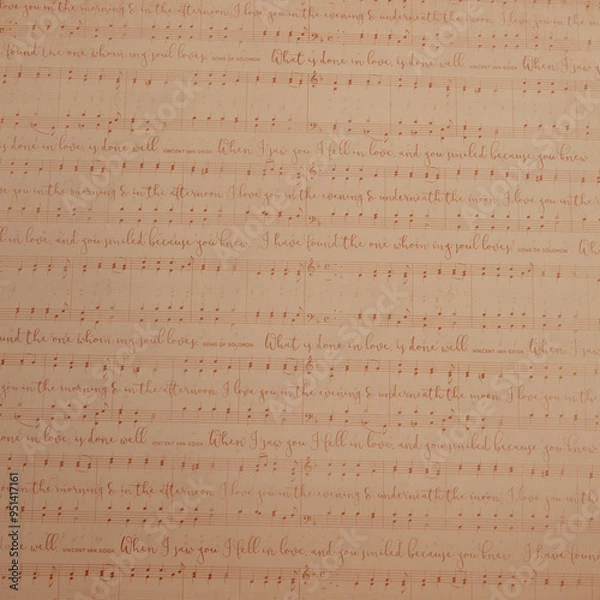 love you in the morning & in the afternoon. I love you in the evening & underneath the moon. I love you in the m
found the one whom my soul loves. SONG OF SOLOMON What is done in love, is done well. VINCENT VAN GOGH When I saw y
is done in love, is done well. VINCENT VAN GOGH When I saw you I fell in love, and you smiled because you knew.
ve you in the morning & in the afternoon. I love you in the evening & underneath the moon. I love you in the m
ll in love, and you smiled because you knew. I have found the one whom my soul loves. SONG OF SOLOMON Wha
und the one whom my soul loves. SONG OF SOLOMON What is done in love, is done well. VINCENT VAN GOGH When I saw
you in the morning & in the afternoon. I love you in the evening & underneath the moon. I love you in the
one in love, is done well. VINCENT VAN GOGH When I saw you I fell in love, and you smiled because you knew.
in the morning & in the afternoon. I love you in the evening & underneath the moon. I love you in the
well. VINCENT VAN GOGH When I saw you I fell in love, and you smiled because you knew. I have found
Adobe Stock | #951417161